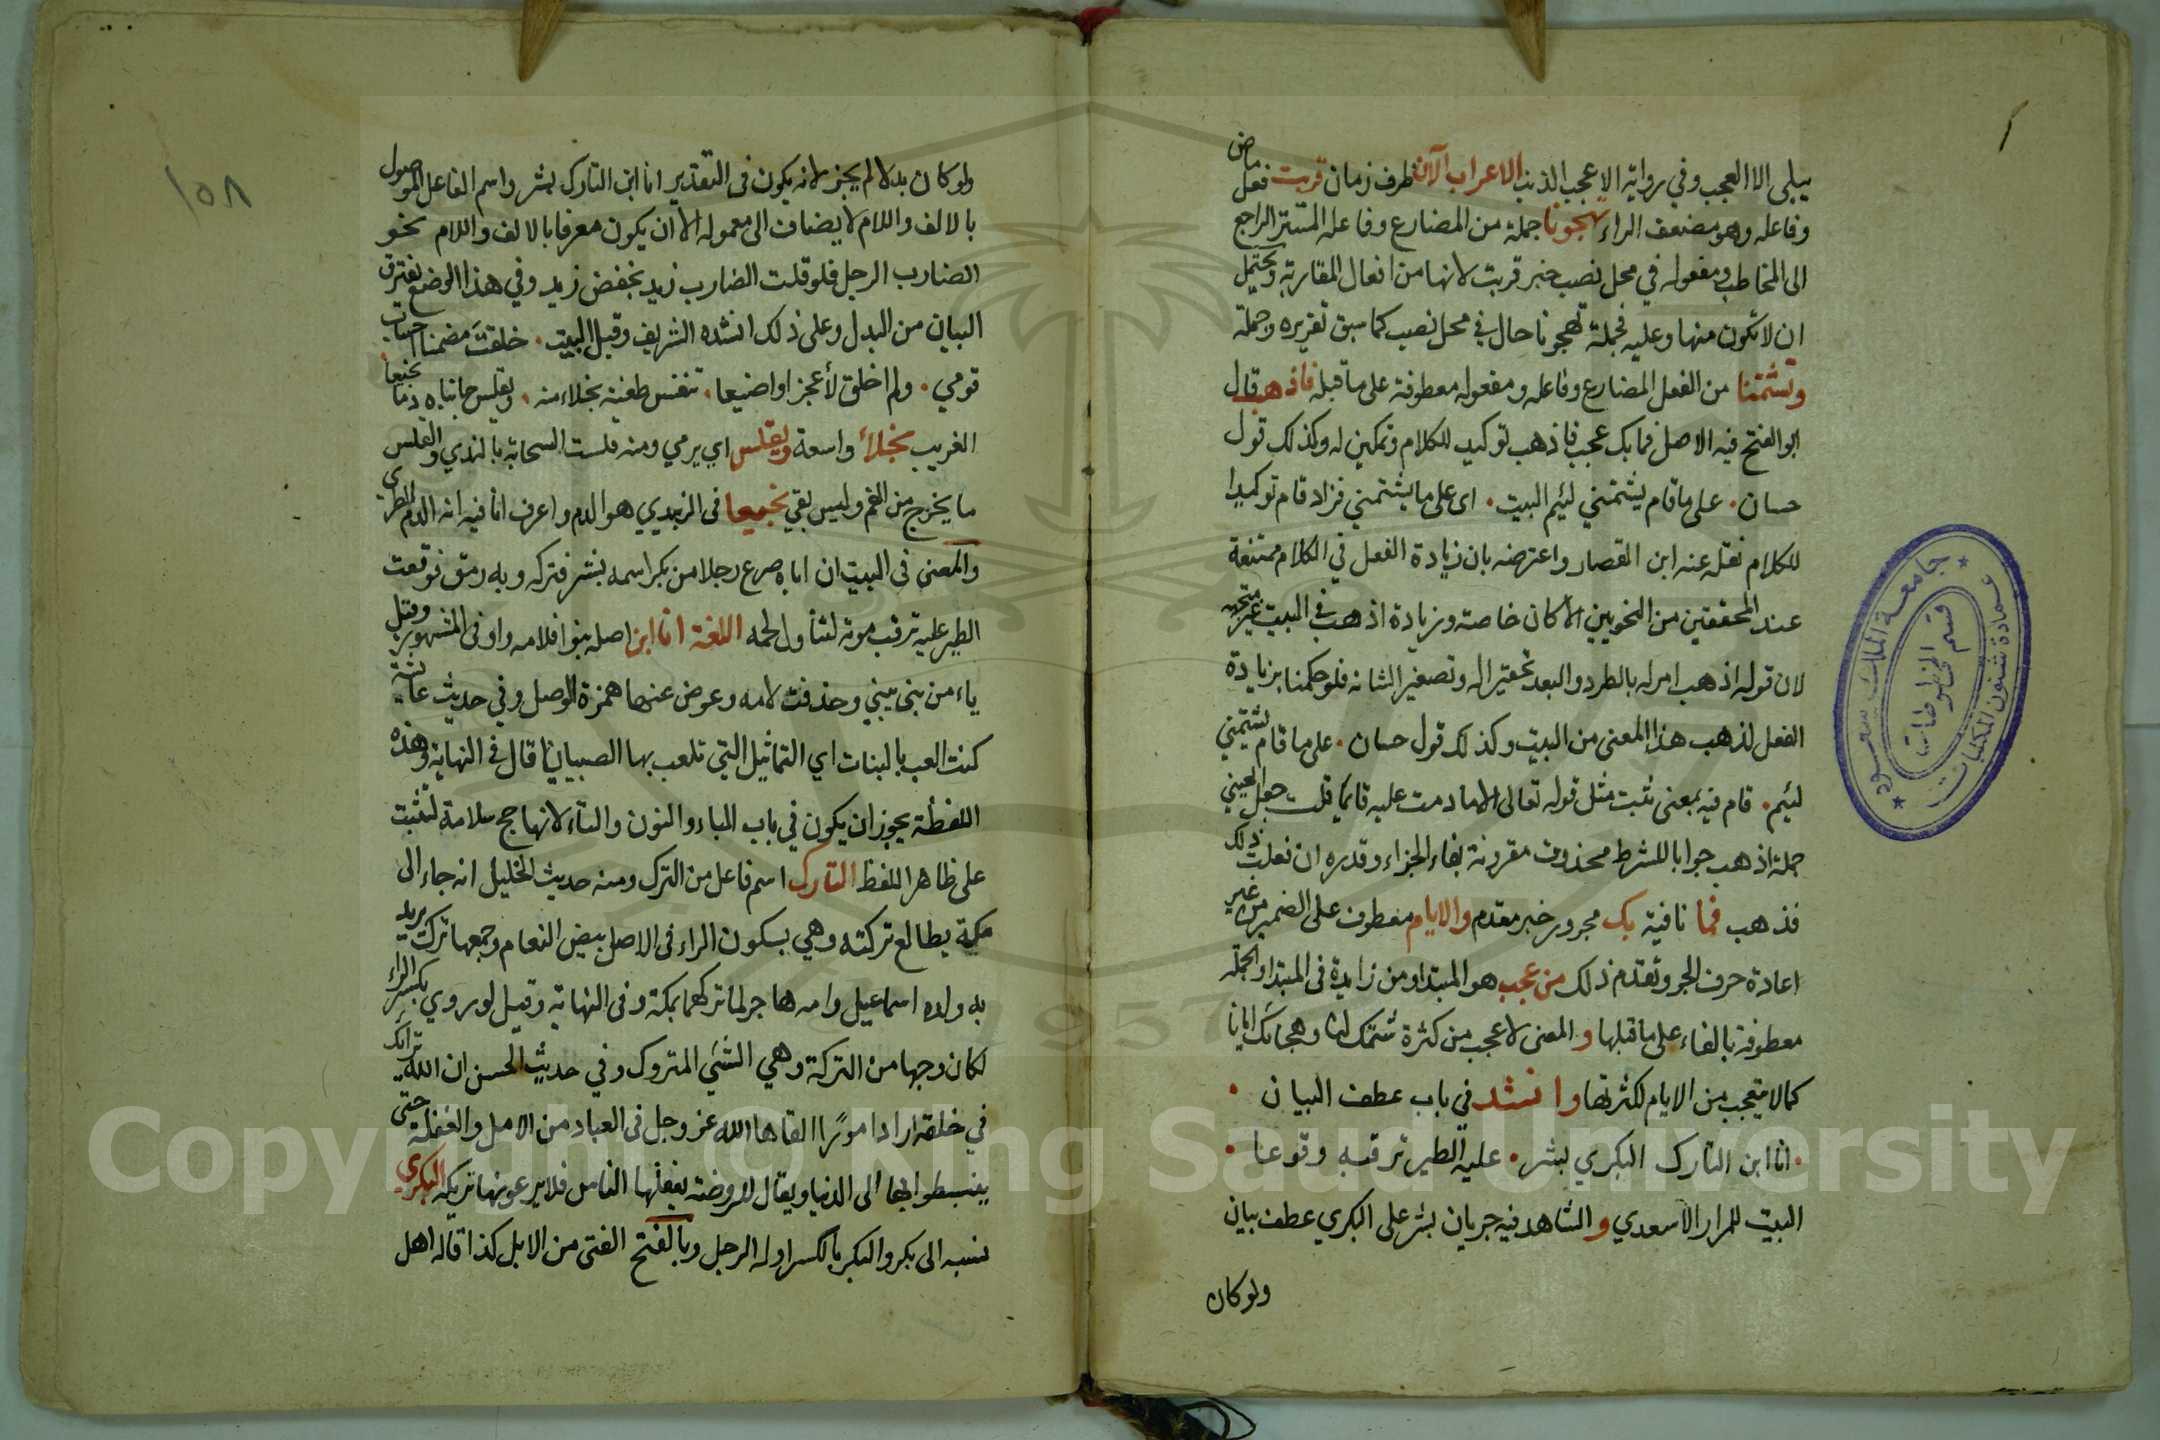 يبلى الا العجب وفي رواية الا عجب الذنب الاعراب الآن ظرف زمان قربت فعل ماض
وفاعله وهو مضعف الراء تهجونا جملة من المضارع وفاعله المستتر الراجع
الى المخاطب ومفعوله في محل نصب خبر قربت لانها من افعال المقاربة ويحتمل
ان لا تكون منها وعليه فجملة تهجونا حال في محل نصب كما سبق تقريره وجملة
وتشتمنا من الفعل المضارع وفاعله ومفعوله معطوفة على ما قبله فاذهب قال
ابو الفتح فيه الاصل فما بك عجب فاذهب توكيد للكلام وتمكين له وكذلك قول
حسان · على ما قام يشتمني لئيم البيت · اى على ما يشتمني فزاد قام توكيدا
للكلام نقله عنه ابن القصار واعترضه بان زيادة الفعل في الكلام ممتنعة
عند المحققين من النحويين الا كان خاصة وزيادة اذهب في البيت غير متجه
لان قوله اذهب امر له بالطرد والبعد تحقير اله وتصغير الشانه فلو حكمنا بزيادة
الفعل لذهب هذا المعنى من البيت وكذلك قول حسان · على ما قام يشتمني
لئيم · قام فيه بمعنى ثبت مثل قوله تعالى الا ما دمت عليه قايما قلت جعل العيني
جملة اذهب جوابا للشرط محذوف مقرونة بفاء الجزاء وقدره ان فعلت ذلك
فذهب فما نافية بك مجرور خبر مقدم والايام معطوف على الضمير من غير
اعادة حرف الجر وتقدم ذلك من عجب هو المبتدا ومن زايدة فى المبتدا والجملة
معطوفة بالفاء على ما قبلها و المعنى لا عجب من كثرة شتمك لنا وهجائك ايانا
كما لا يتعجب من الايام لكثرتها وانشد في باب عطف البيان ·
· انا ابن التارك البكري بشر · عليه الطير ترقبه وقوعا ·
البيت للمرار الاسعدي و الشاهد فيه جريان بشر على البكري عطف بيان
ولو كان
ولو كان بدلا لم يجز لانه يكون فى التقدير انا ابن التارك بشر واسم الفاعل الموصول
بالالف واللام لا يضاف الى معموله الا ان يكون معرفا بالالف واللام نحو
الضارب الرجل فلو قلت الضارب زيد بخفض زيد وفي هذا الوضع يفترق
البيان من البدل وعلى ذلك انشده الشريف وقبل البيت · خلقت مضمنا حيات
قومي · ولم اخلق لأعجز او اضيعا · تنفس طعنة نجلاء منه · ويقلس جانباه دما نجيعا
الغريب نجلأ واسعة ويقلس اي يرمي ومنه قلست السحابة بالندي والقلس
ما يخرج من الفم وليس بقي نجيعا فى الزبيدي هو الدم واعرف انا فيه انه الدم الطرى
والمعنى فى البيت ان اباه صرع رجلا من بكر اسمه بشر فتركه وبه رمق فوقعت
الطير عليه ترقب موته لتناول لحمه اللغة انا ابن اصله بنو افلامه واو فى المشهور وقيل
ياء من بنى يبني وحذفت لامه وعوض عنها همزة الوصل وفي حديث عائشة
كنت العب بالبنات اي التماثيل التي تلعب بها الصبيان قال في النهاية وهذه
اللفظة يجوز ان يكون في باب الباء والنون والتاء لانها جمع سلامة لتثبت
على ظاهر اللفظ التارك اسم فاعل من الترك ومنه حديث الخليل انه جاء الى
مكة يطالع تركته وهي بسكون الراء فى الاصل بيض النعام وجمعها ترك يريد
به ولده اسماعيل وامه هاجر لما تركهما بمكة وفى النهاية وقيل لو روي بكسر الراء
لكان وجها من التركة وهي الشئ المتروك وفي حديث الحسن ان الله ترائك
في خلقه اراد امورًا القاها الله عز وجل فى العباد من الامل والغفلة حتى
ينبسطوا بها الى الدنيا ويقال لا روضة يغفلها الناس فلا يرعونها تريكه البكري
نسبه الى بكر والبكر بالكسر اوله الرجل وبالفتح الفتى من الابل كذا قاله اهل
١٥٨
جامعة الملك سعود
عمادة شئون المكتبات
قسم المخطوطات
Copyright © King Saud University
1957